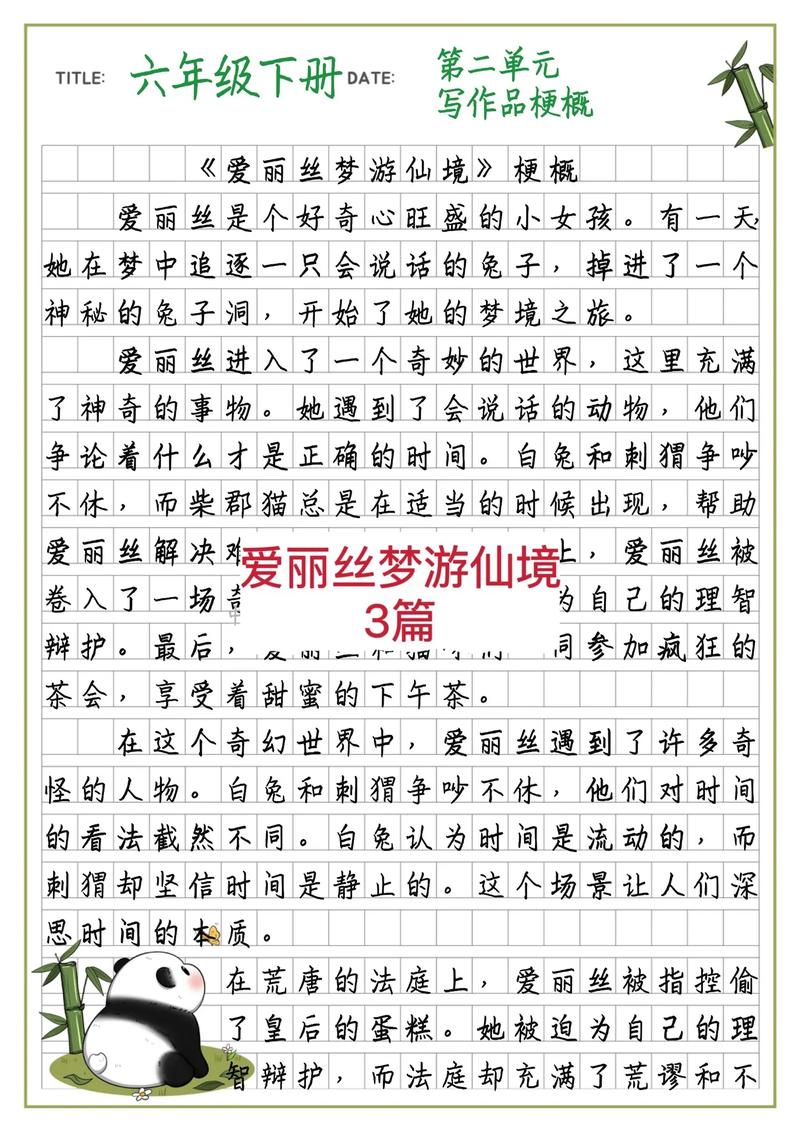 TITLE: 六年级下册 DATE: 第二单元
写作品梗概
《爱丽丝梦游仙境》梗概
爱丽丝是个好奇心旺盛的小女孩。有一天,
她在梦中追逐一只会说话的兔子,掉进了一个
神秘的兔子洞,开始了她的梦境之旅。
爱丽丝进入了一个奇妙的世界,这里充满
了神奇的事物。她遇到了会说话的动物,他们
争论着什么才是正确的时间。白兔和刺猬争吵
不休,而柴郡猫总是在适当的时候出现,帮助
爱丽丝解决难 上,爱丽丝被
卷入了一场 为自己的理智
辩护。最后, 同参加疯狂的
爱丽丝梦游仙境
3篇
茶会,享受着甜蜜的下午茶。
在这个奇幻世界中,爱丽丝遇到了许多奇
怪的人物。白兔和刺猬争吵不休,他们对时间
的看法截然不同。白兔认为时间是流动的,而
刺猬却坚信时间是静止的。这个场景让人们深
思时间的本质。
在荒唐的法庭上,爱丽丝被指控偷
了皇后的蛋糕。她被迫为自己的理
智辩护,而法庭却充满了荒谬和不